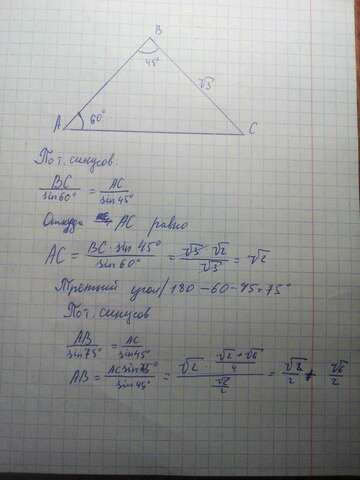 B
45°
√3
A
60°
C
По т. синусов.
BC/sin60° = AC/sin45°
Откуда AC равно
AC = BC sin 45°/sin 60° = √3 √2/√3 = √2
Третий угол 180-60-45=75°
По т. синусов
AB/sin75° = AC/sin45°
AB = AC sin75°/sin45° = √2 (√2+√6)/4 / (√2/2) = √2/2 + √6/2